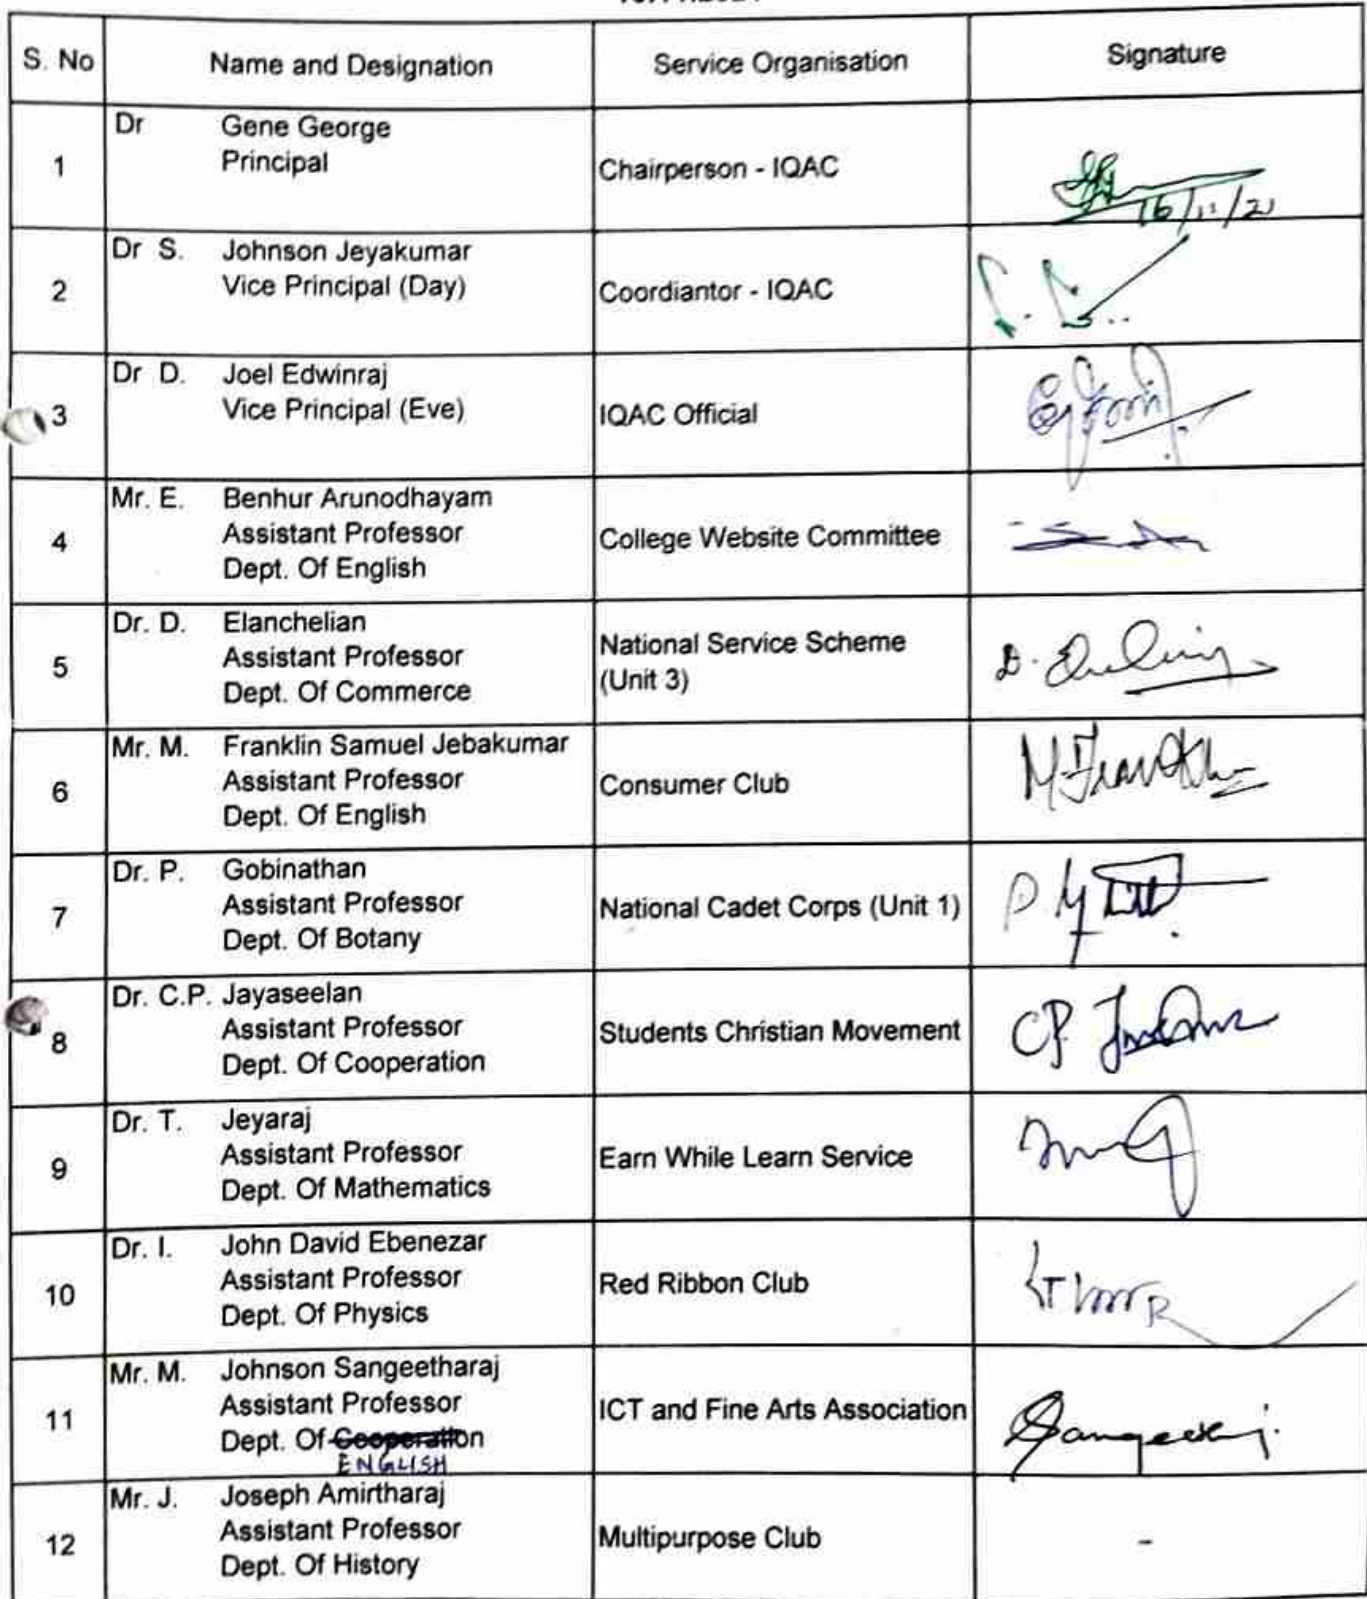 S. No Name and Designation Service Organisation Signature
1 Dr Gene George
Principal
Chairperson - IQAC
16/11/21
2 Dr S. Johnson Jeyakumar
Vice Principal (Day)
Coordiantor - IQAC
3 Dr D. Joel Edwinraj
Vice Principal (Eve)
IQAC Official
4 Mr. E. Benhur Arunodhayam
Assistant Professor
Dept. Of English
College Website Committee
5 Dr. D. Elanchelian
Assistant Professor
Dept. Of Commerce
National Service Scheme
(Unit 3)
6 Mr. M. Franklin Samuel Jebakumar
Assistant Professor
Dept. Of English
Consumer Club
7 Dr. P. Gobinathan
Assistant Professor
Dept. Of Botany
National Cadet Corps (Unit 1)
8 Dr. C.P. Jayaseelan
Assistant Professor
Dept. Of Cooperation
Students Christian Movement
9 Dr. T. Jeyaraj
Assistant Professor
Dept. Of Mathematics
Earn While Learn Service
10 Dr. I. John David Ebenezar
Assistant Professor
Dept. Of Physics
Red Ribbon Club
11 Mr. M. Johnson Sangeetharaj
Assistant Professor
Dept. Of Cooperation
ENGLISH
ICT and Fine Arts Association
12 Mr. J. Joseph Amirtharaj
Assistant Professor
Dept. Of History
Multipurpose Club
-